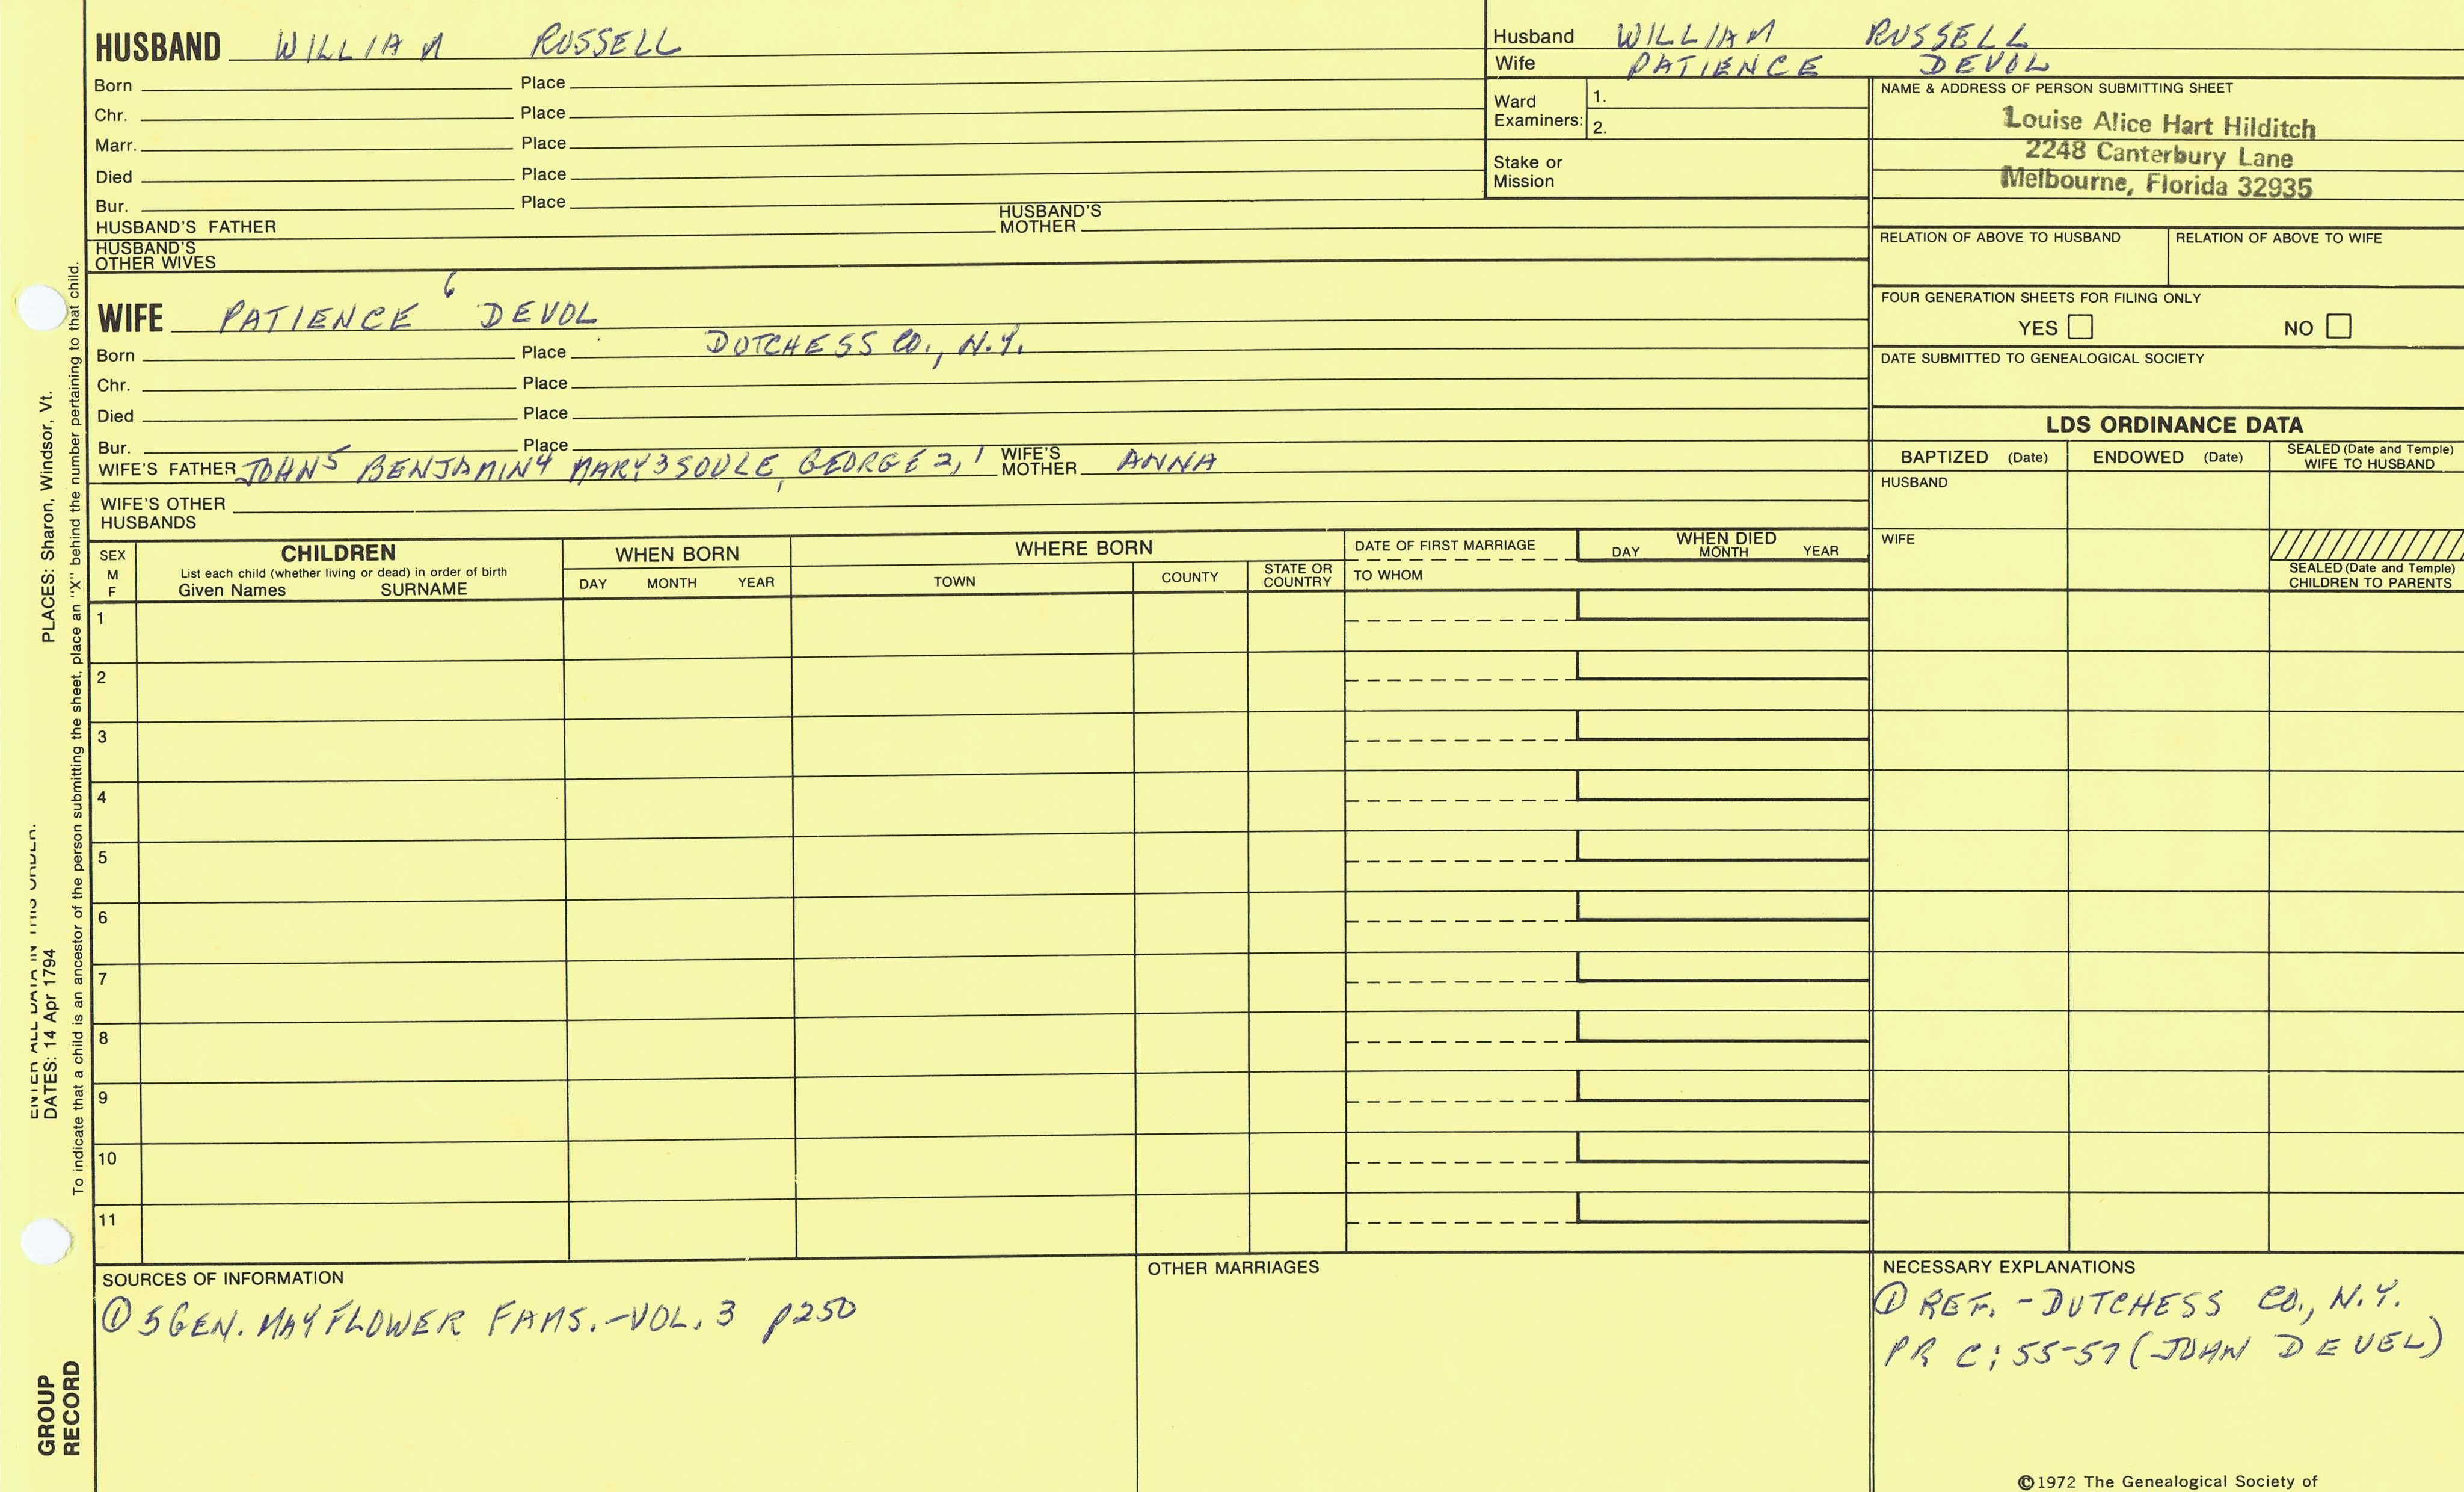 HUSBAND WILLIAM RUSSELL
Born Place
Chr. Place
Marr. Place
Died Place
Bur. Place
HUSBAND'S FATHER HUSBAND'S MOTHER
HUSBAND'S OTHER WIVES
Husband WILLIAM RUSSELL
Wife PATIENCE DEVOL
Ward Examiners: 1.
2.
Stake or Mission
NAME & ADDRESS OF PERSON SUBMITTING SHEET
Louise Alice Hart Hilditch
2248 Canterbury Lane
Melbourne, Florida 32935
RELATION OF ABOVE TO HUSBAND RELATION OF ABOVE TO WIFE
FOUR GENERATION SHEETS FOR FILING ONLY
YES NO
DATE SUBMITTED TO GENEALOGICAL SOCIETY
WIFE PATIENCE 6 DEVOL
Born Place DUTCHESS CO., N.Y.
Chr. Place
Died Place
Bur. Place
WIFE'S FATHER JOHN5 BENJAMIN4 MARY3 SOULE, GEORGE 2,1 WIFE'S MOTHER ANNA
WIFE'S OTHER HUSBANDS
LDS ORDINANCE DATA
BAPTIZED (Date) ENDOWED (Date) SEALED (Date and Temple) WIFE TO HUSBAND
HUSBAND
WIFE
SEALED (Date and Temple) CHILDREN TO PARENTS
SEX M F
CHILDREN
List each child (whether living or dead) in order of birth
Given Names SURNAME
WHEN BORN
DAY MONTH YEAR
WHERE BORN
TOWN COUNTY STATE OR COUNTRY
DATE OF FIRST MARRIAGE
TO WHOM
WHEN DIED
DAY MONTH YEAR
1
2
3
4
5
6
7
8
9
10
11
SOURCES OF INFORMATION
① 5 GEN. MAYFLOWER FAMS.-VOL. 3 p250
OTHER MARRIAGES
NECESSARY EXPLANATIONS
① REF. - DUTCHESS CO., N.Y.
PR C: 55-57 (JOHN DEUEL)
©1972 The Genealogical Society of
GROUP RECORD
ENTER ALL DATA IN THIS ORDER:
DATES: 14 Apr 1794 PLACES: Sharon, Windsor, Vt.
To indicate that a child is an ancestor of the person submitting the sheet, place an "X" behind the number pertaining to that child.